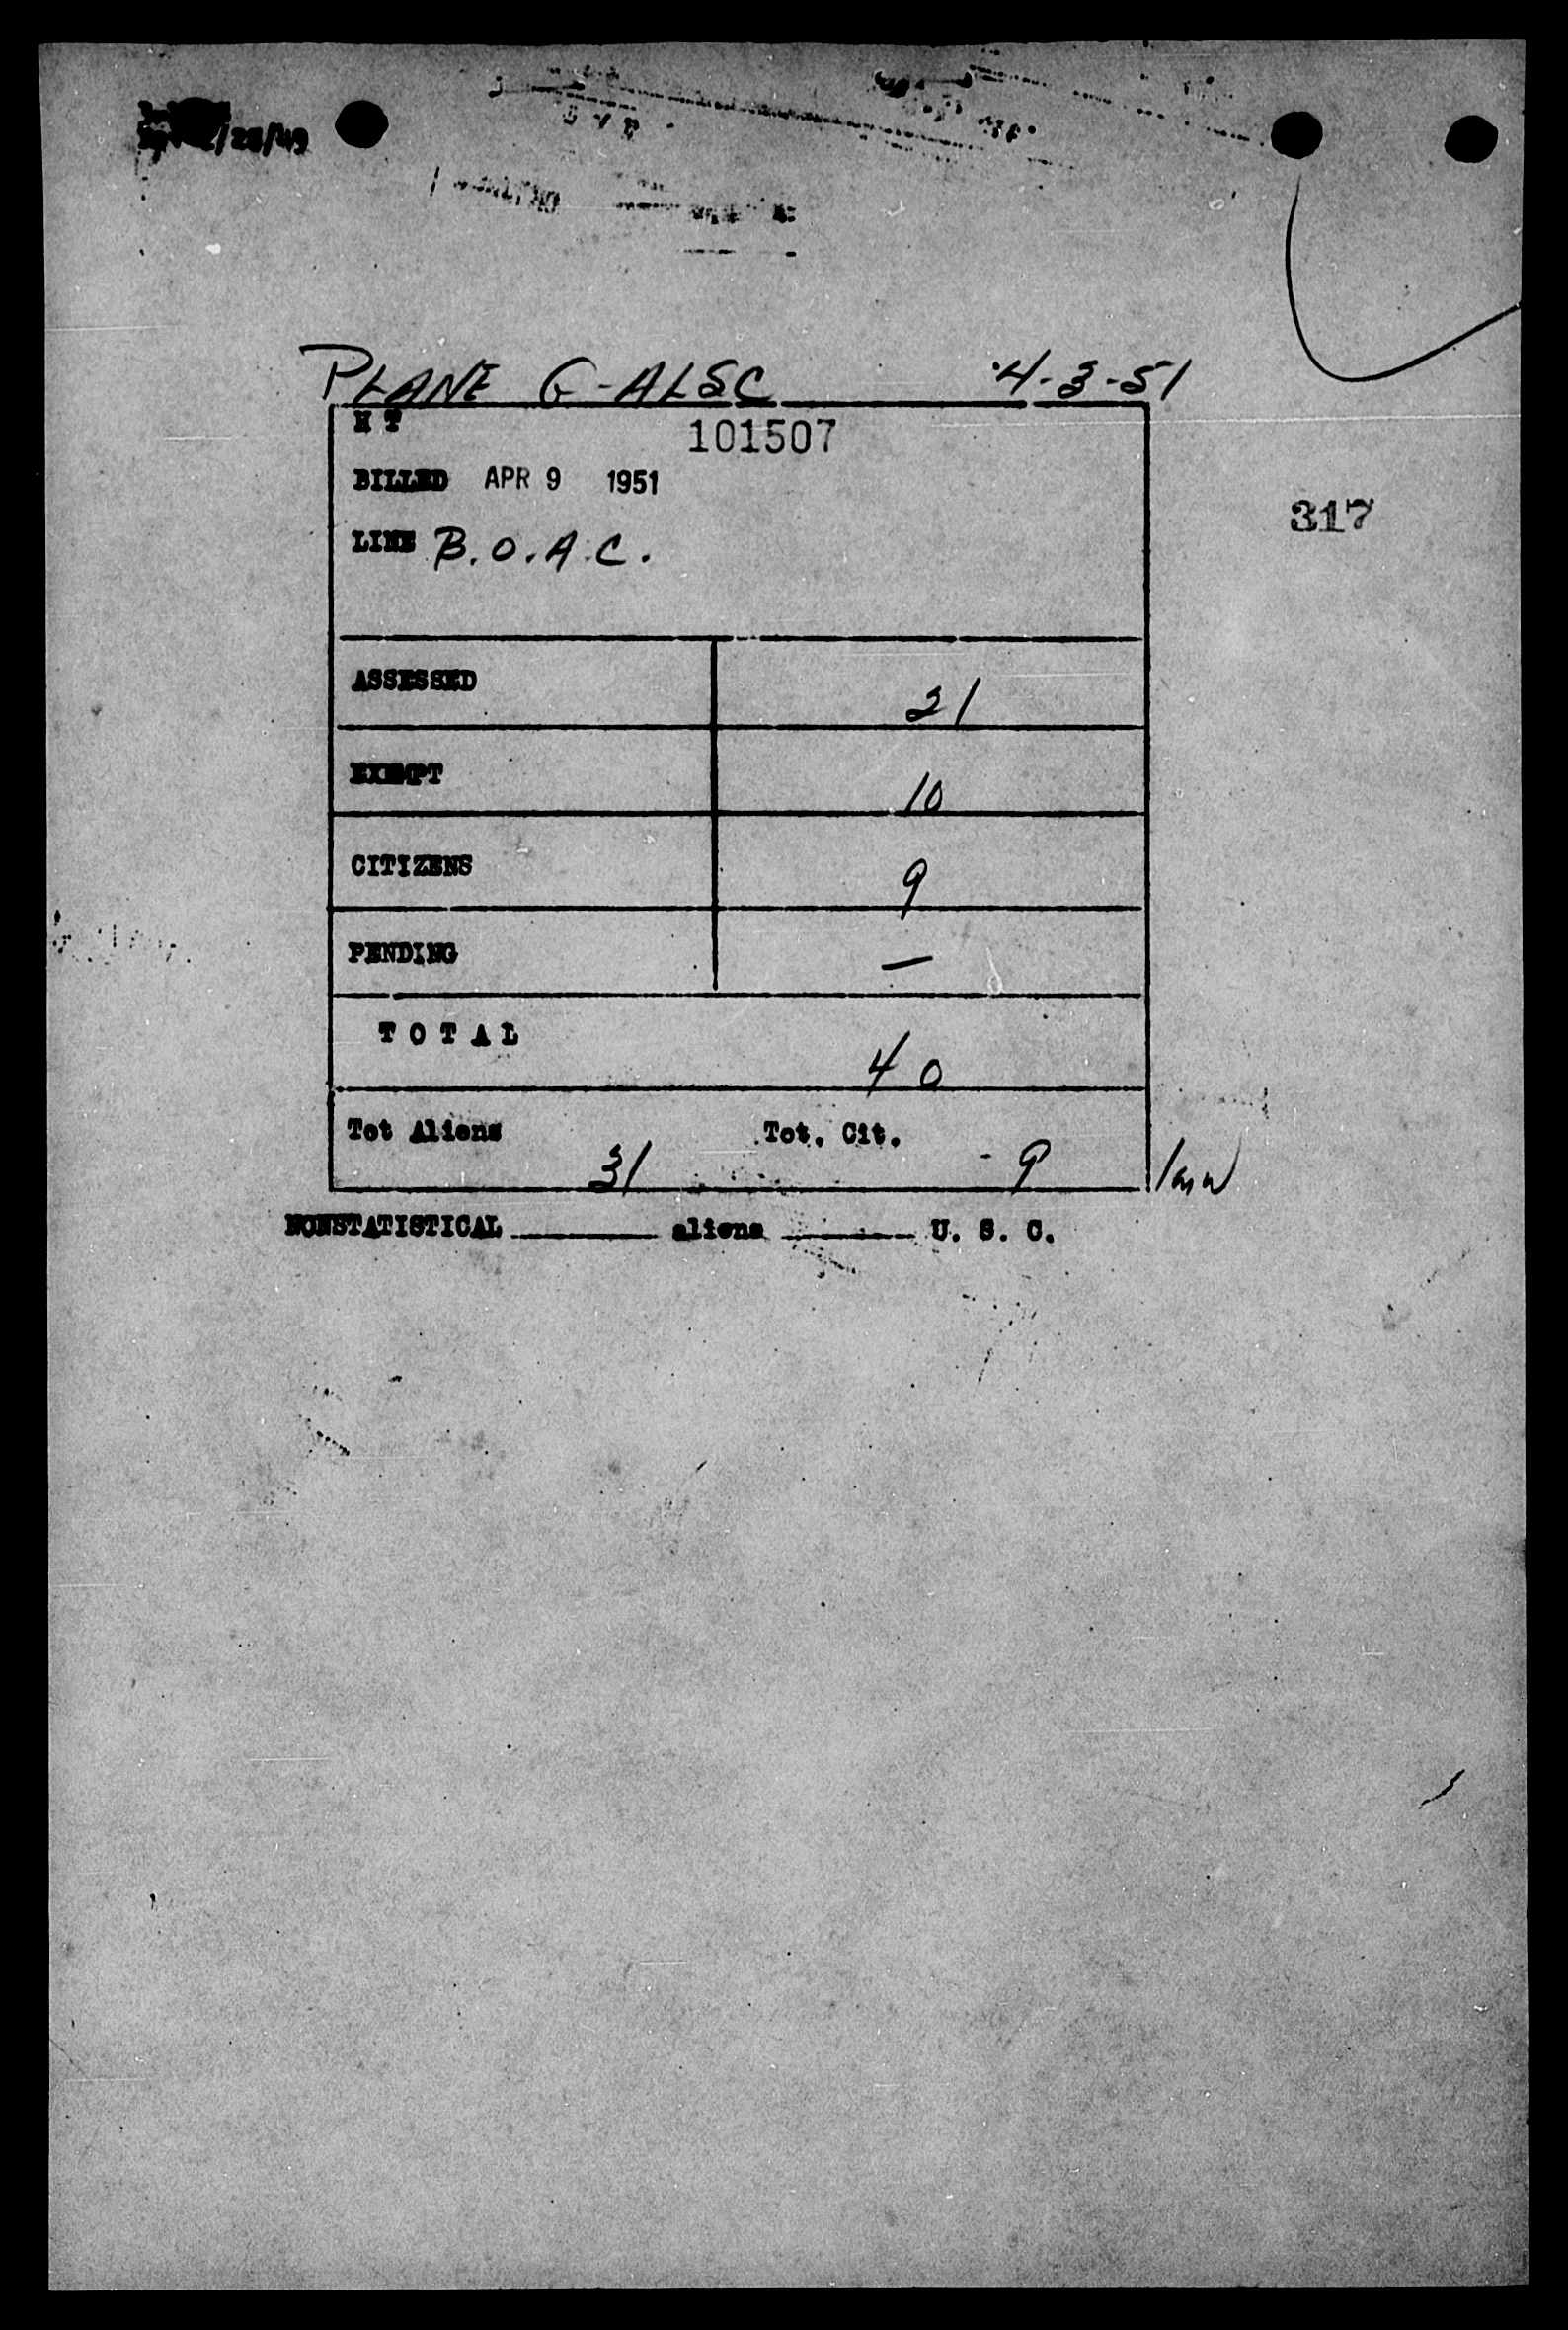 /28/49
PLANE G-ALSC 4-3-51
H T 101507
BILLED APR 9 1951
317
LINE B.O.A.C.
ASSESSED 21
EXEMPT 10
CITIZENS 9
PENDING —
TOTAL 40
Tot Aliens 31 Tot. Cit. 9
NONSTATISTICAL ________ aliens ________ U. S. C.